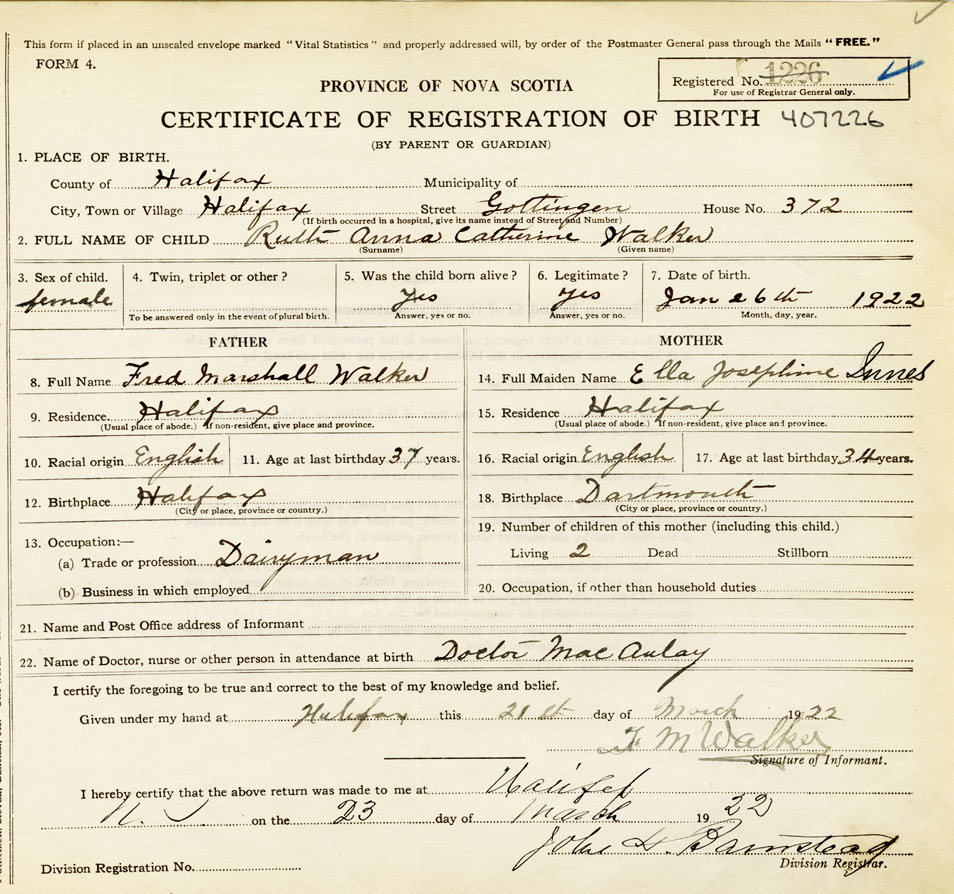 This form if placed in an unsealed envelope marked "Vital Statistics" and properly addressed will, by order of the Postmaster General pass through the Mails "FREE."
FORM 4.
Registered No. 1226
For use of Registrar General only.
PROVINCE OF NOVA SCOTIA
CERTIFICATE OF REGISTRATION OF BIRTH 407226
(BY PARENT OR GUARDIAN)
1. PLACE OF BIRTH.
County of Halifax Municipality of
City, Town or Village Halifax Street Gottingen House No. 372
(If birth occurred in a hospital, give its name instead of Street and Number)
2. FULL NAME OF CHILD Ruth Anna Catherine Walker
(Surname) (Given name)
3. Sex of child. 4. Twin, triplet or other? 5. Was the child born alive? 6. Legitimate? 7. Date of birth.
female Yes Yes Jan 26th 1922
To be answered only in the event of plural birth. Answer, yes or no. Answer, yes or no. Month, day, year.
FATHER MOTHER
8. Full Name Fred Marshall Walker 14. Full Maiden Name Ella Josephine Innes
9. Residence. Halifax 15. Residence Halifax
(Usual place of abode.) If non-resident, give place and province. (Usual place of abode.) If non-resident, give place and province.
10. Racial origin English 11. Age at last birthday 37 years. 16. Racial origin English 17. Age at last birthday 34 years.
12. Birthplace Halifax 18. Birthplace Dartmouth
(City or place, province or country.) (City or place, province or country.)
13. Occupation:— 19. Number of children of this mother (including this child.)
(a) Trade or profession Dairyman Living 2 Dead Stillborn
(b) Business in which employed 20. Occupation, if other than household duties
21. Name and Post Office address of Informant
22. Name of Doctor, nurse or other person in attendance at birth Doctor MacAulay
I certify the foregoing to be true and correct to the best of my knowledge and belief.
Given under my hand at Halifax this 21st day of March 1922
F M Walker
Signature of Informant.
I hereby certify that the above return was made to me at Halifax
N. S. on the 23 day of March 1922
John
Division Registration No. Division Registrar.